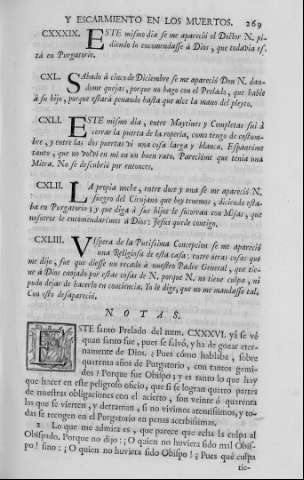 Y ESCARMIENTO EN LOS MUERTOS. 269
CXXXIX. ESTE mismo dia se me apareció el Doctor N. pi-
diendo lo encomendasse à Dios, que todavia es-
tà en Purgatorio.
CXL. Sabado à cinco de Diciembre se me apareció Don N. dan-
dome quejas, porque no hago con el Prelado, que hable
à su hijo, porque estarà penando hasta que alce la mano del pleyto.
CXLI. ESTE mismo dia, entre Maytines y Completas fui à
cerrar la puerta de la roperia, como tengo de costum-
bre, y entre las dos puertas vi una cosa larga y blanca. Espantème
tanto, que no volvi en mi en un buen rato. Pareciòme que tenia una
Mitra. No se descubriò por entonces.
CXLII. LA propia noche, entre doce y una se me apareció N.
suegro del Cirujano que hoy tenemos, diciendo esta-
ba en Purgatorio; y que diga à sus hijos le socorran con Misas, que
nosotras le encomendarìmos à Dios: Jesus quede contigo.
CXLIII. Vispera de la Purissima Concepcion se me apareció
una Religiosa de esta casa: entre otras cosas que
me dijo, fue que diesse un recado à nuestro Padre General, que tie-
ne à Dios enojado por estas cosas de N. porque N. no tiene culpa, ni
pudo dejar de hacerlo en conciencia. Yo le digo, que no me mandasse tal.
Con esto desapareció.
NOTAS.
ESTE santo Prelado del num. CXXXVI. yà se vè
quan santo fue, pues se salvò, y ha de gozar eter-
namente de Dios. ¿Pues còmo hablaba, sobre
quarenta años de Purgatorio, con tantos gemi-
dos? Porque fue Obispo; y es tanto lo que hay
que hacer en este peligroso oficio, que si se logran quatro partes
de nuestras obligaciones con el acierto, son veinte ò quarenta
las que se vierten, y derraman, si no vivimos atentissimos, y to-
das se recogen en el Purgatorio en penas acerbissimas.
2 Lo que me admira es, que parece que echa la culpa al
Obispado. Porque no dijo: ¡O quien no huviera sido mal Obis-
po! sino: ¡O quien no huviera sido Obispo! ¿Pues què culpa
tie-